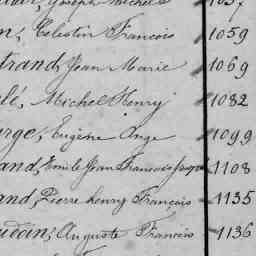 Joseph Michel 1057
n, Celestin Francois 1059
trand, Jean Marie 1069
lé, Michel Henry 1082
urge, Eugène Ange 1099
and, Emile Jean Francois 1108
and, Pierre henry François 1135
udoin, Auguste Francois 1136